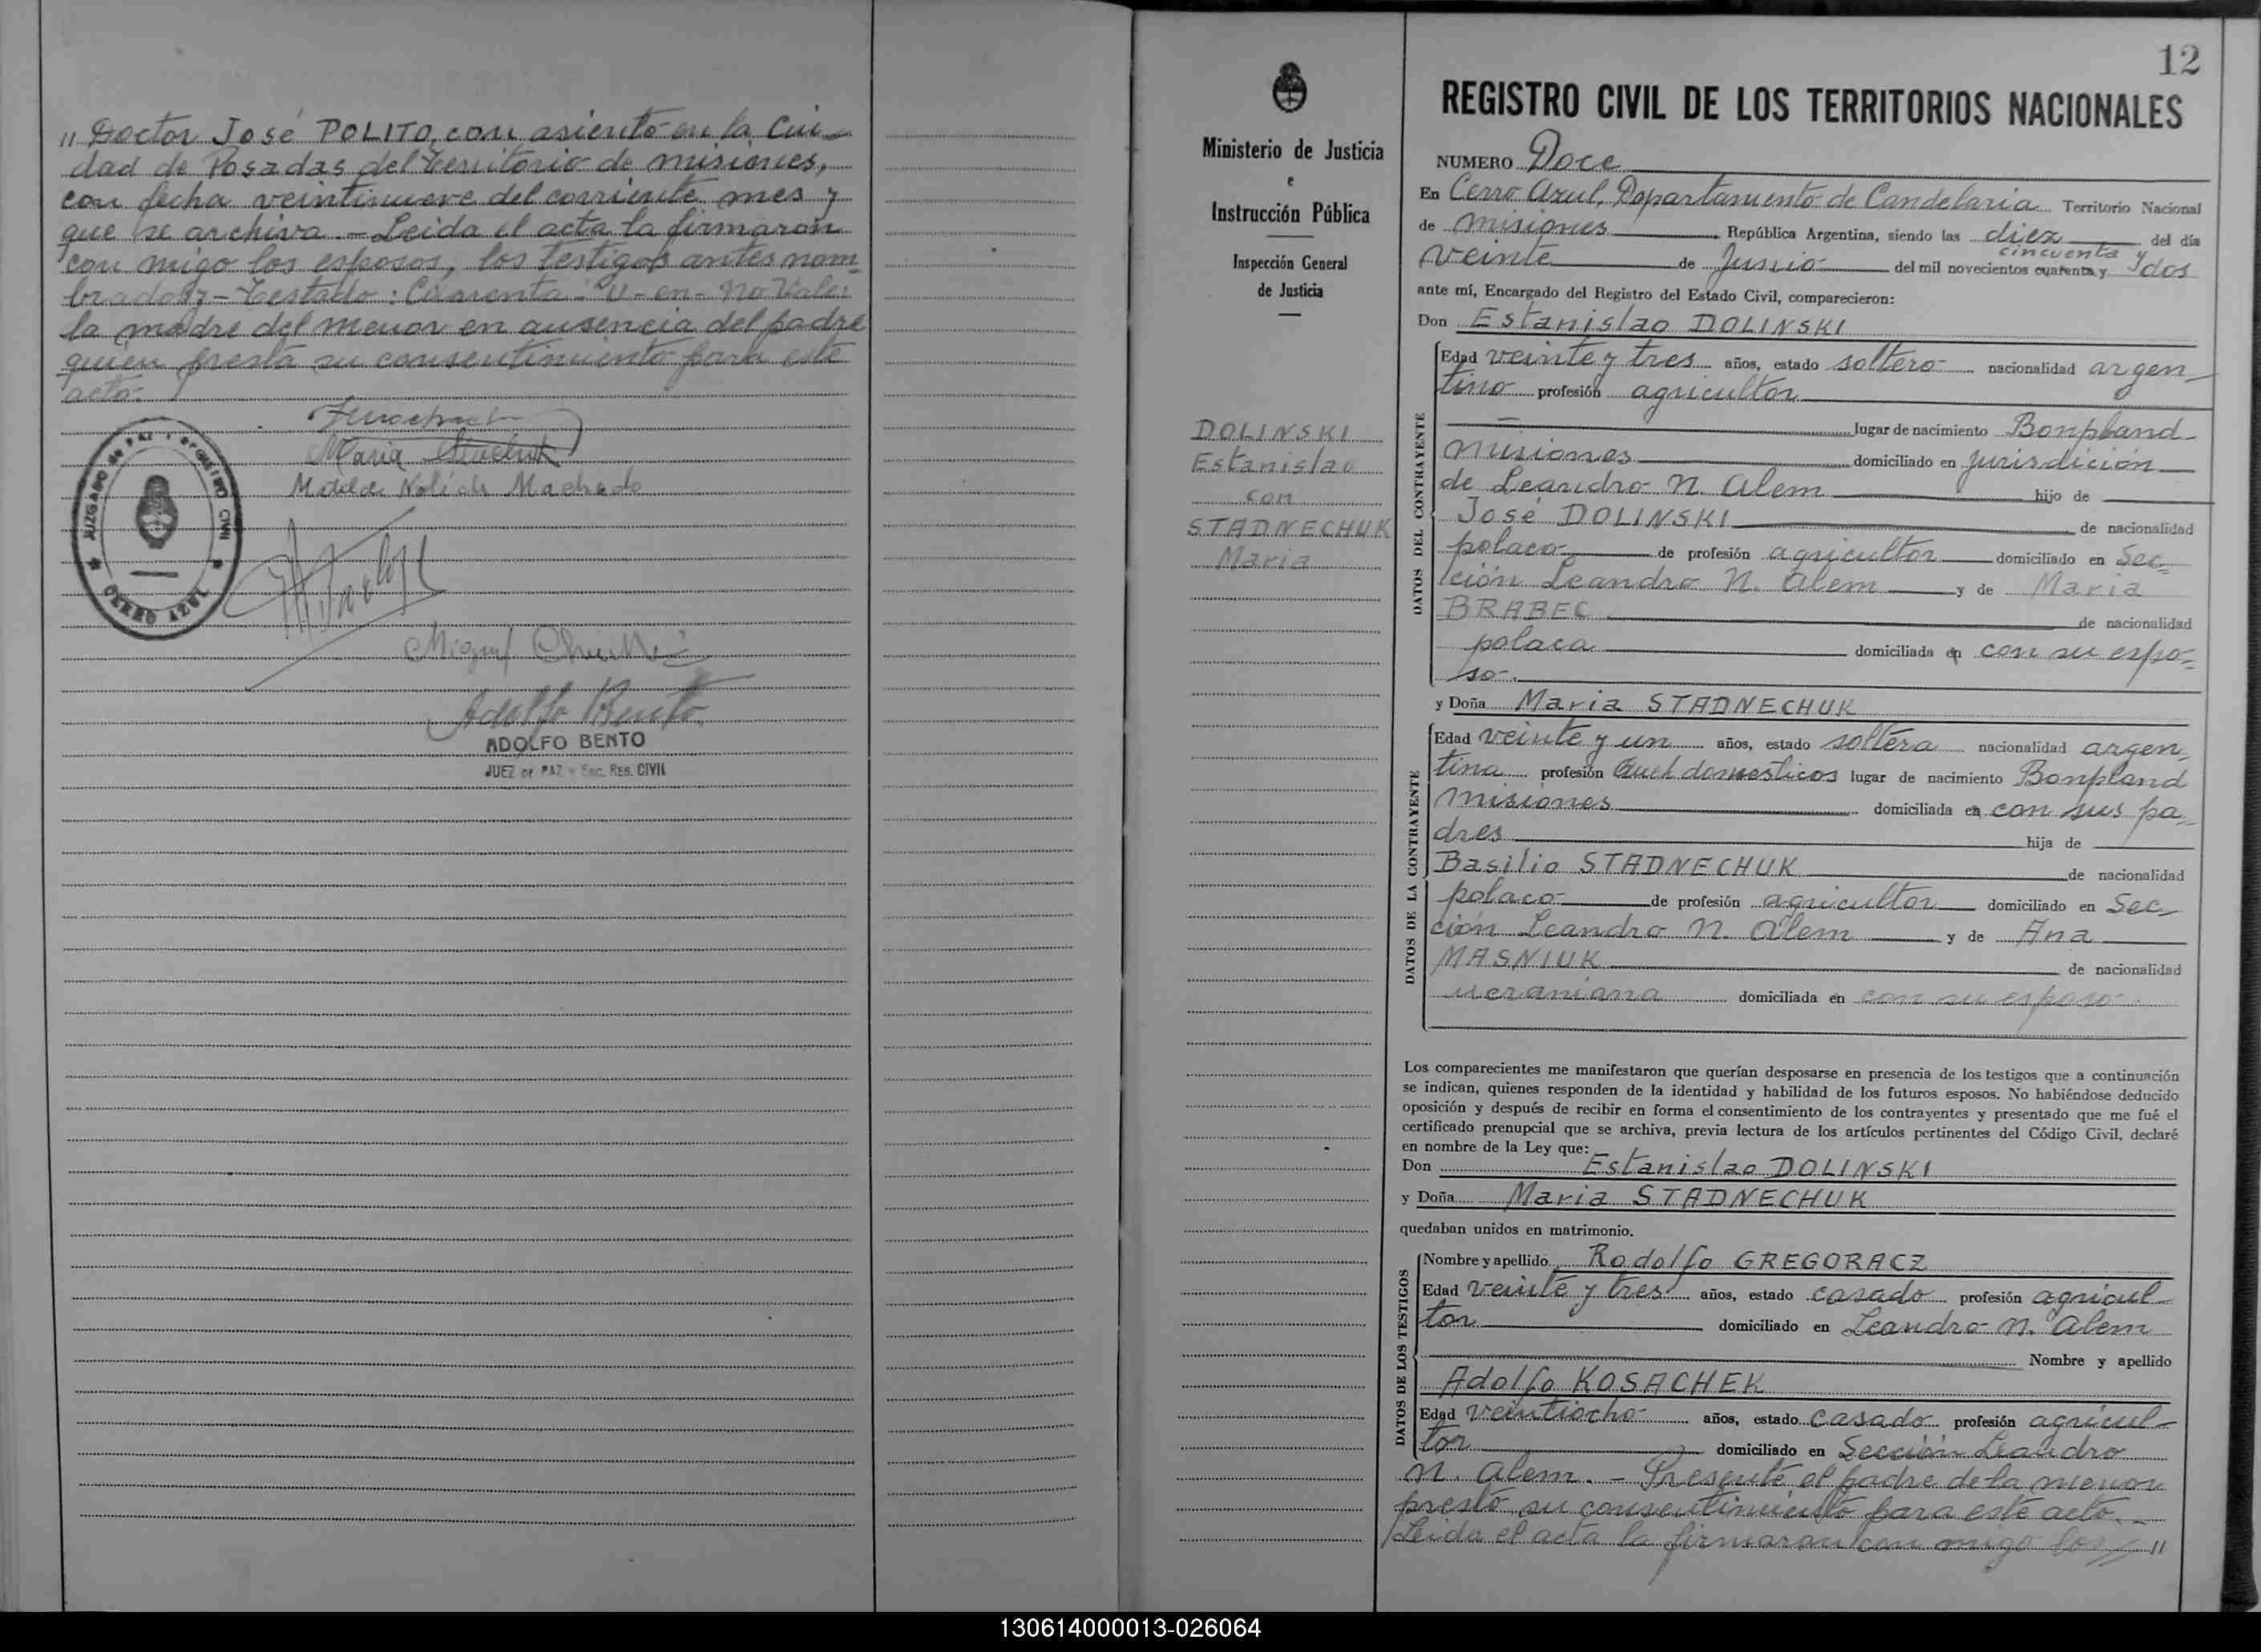 " Doctor José POLITO, con asiento en la Ciu-
dad de Posadas del Territorio de Misiones,
con fecha veintinueve del corriente mes y
que se archiva.- Leida el acta la firmaron
con migo los esposos, los testigos antes nom-
brados y - Testado: Cuarenta - V - en - No Vale:
la madre del menor en ausencia del padre
quien presta su consentimiento para este
acto.-
Maria
Machado
JUZGADO de PAZ Y REGISTRO CIVIL
CERRO AZUL
Miguel
Adolfo Bento
ADOLFO BENTO
JUEZ DE PAZ - Enc. REG. CIVIL
Ministerio de Justicia
e
Instrucción Pública
Inspección General
de Justicia
DOLINSKI
Estanislao
con
STADNECHUK
Maria
12
REGISTRO CIVIL DE LOS TERRITORIOS NACIONALES
NUMERO Doce
En Cerro Azul, Departamento de Candelaria Territorio Nacional
de Misiones, República Argentina, siendo las diez del día
cincuenta y
veinte de Junio del mil novecientos cuarenta y dos
ante mí, Encargado del Registro del Estado Civil, comparecieron:
Don Estanislao DOLINSKI
DATOS DEL CONTRAYENTE
Edad veinte y tres años, estado soltero nacionalidad argen-
tino profesión agricultor
lugar de nacimiento Bonpland-
Misiones domiciliado en jurisdición
de Leandro N. Alem hijo de
José DOLINSKI de nacionalidad
polaco de profesión agricultor domiciliado en Sec-
ción Leandro N. Alem y de Maria
BRABEC de nacionalidad
polaca domiciliada en con su espo-
so.
y Doña Maria STADNECHUK
DATOS DE LA CONTRAYENTE
Edad veinte y un años, estado soltera nacionalidad argen-
tina profesión Queh domesticos lugar de nacimiento Bonpland
Misiones domiciliada en con sus pa-
dres hija de
Basilio STADNECHUK de nacionalidad
polaco de profesión agricultor domiciliado en Sec-
ción Leandro N. Alem y de Ana
MASNIUK de nacionalidad
ucraniana domiciliada en con su esposo.
Los comparecientes me manifestaron que querían desposarse en presencia de los testigos que a continuación
se indican, quienes responden de la identidad y habilidad de los futuros esposos. No habiéndose deducido
oposición y después de recibir en forma el consentimiento de los contrayentes y presentado que me fué el
certificado prenupcial que se archiva, previa lectura de los artículos pertinentes del Código Civil, declaré
en nombre de la Ley que:
Don Estanislao DOLINSKI
y Doña Maria STADNECHUK
quedaban unidos en matrimonio.
DATOS DE LOS TESTIGOS
Nombre y apellido Rodolfo GREGORACZ
Edad veinte y tres años, estado casado profesión agricul-
tor domiciliado en Leandro N. Alem
Nombre y apellido
Adolfo KOSACHEK
Edad veintiocho años, estado casado profesión agricul-
tor domiciliado en Sección Leandro
N. Alem. - Presente el padre de la menor
prestó su consentimiento para este acto.-
Leida el acta la firmaron con migo los "
130614000013-026064